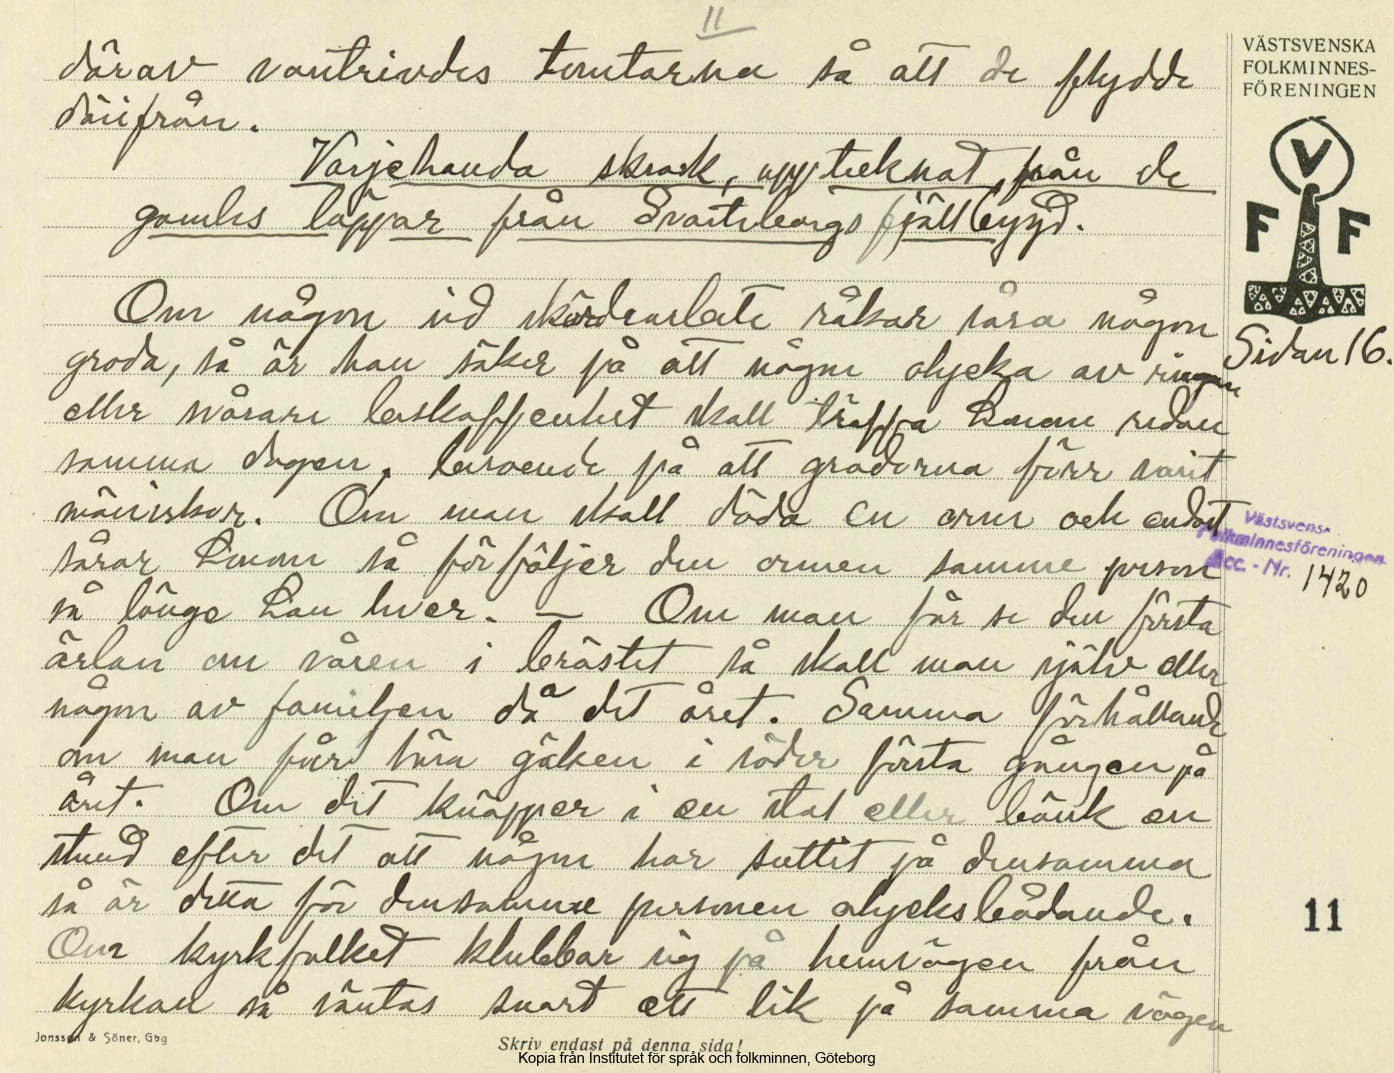 11
därav vantrivdes tomtarna så att de flydde
därifrån.
Varjehanda skrock, upptecknat från de
gamles läppar från Svarteborgs fjällbygd.
Om någon vid skördearbete råkar såra någon
groda, så är han säker på att någon olycka av ringare
eller svårare beskaffenhet skall träffa honom redan
samma dagen, beroende på att grodorna förr varit
människor. Om man skall döda en orm och endast
sårar honom så förföljer den ormen samme person
så länge han lever. — Om man får se den första
ärlan om våren i bröstet så skall man själv eller
någon av familjen då det året. Samma förhållande
om man får höra göken i söder första gången på
året. Om det knäpper i en stol eller bänk en
stund efter det att någon har suttit på densamma
så är detta för densamme personen olycksbådande.
Om kyrkfolket klubbar sig på hemvägen från
kyrkan så väntas snart ett lik på samma vägen
VÄSTSVENSKA
FOLKMINNES-
FÖRENINGEN
V
F F
Sidan 16.
Västsvens.
Folkminnesföreningen
Acc. - Nr. 1420
11
Jonsson & Söner, Gbg
Skriv endast på denna sida!
Kopia från Institutet för språk och folkminnen, Göteborg